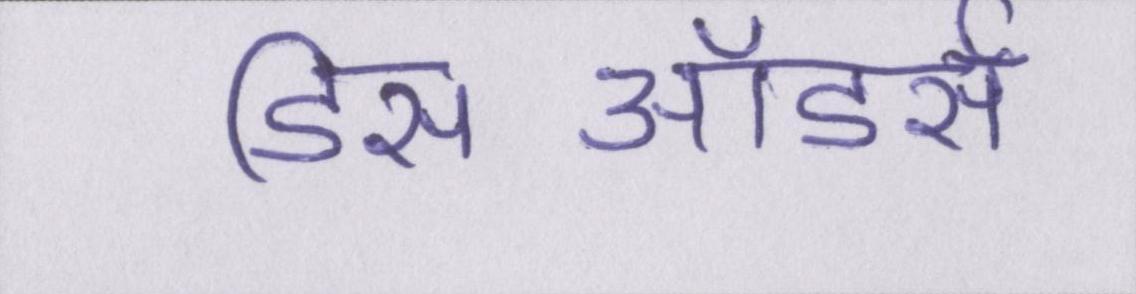 डिस ऑडर्स